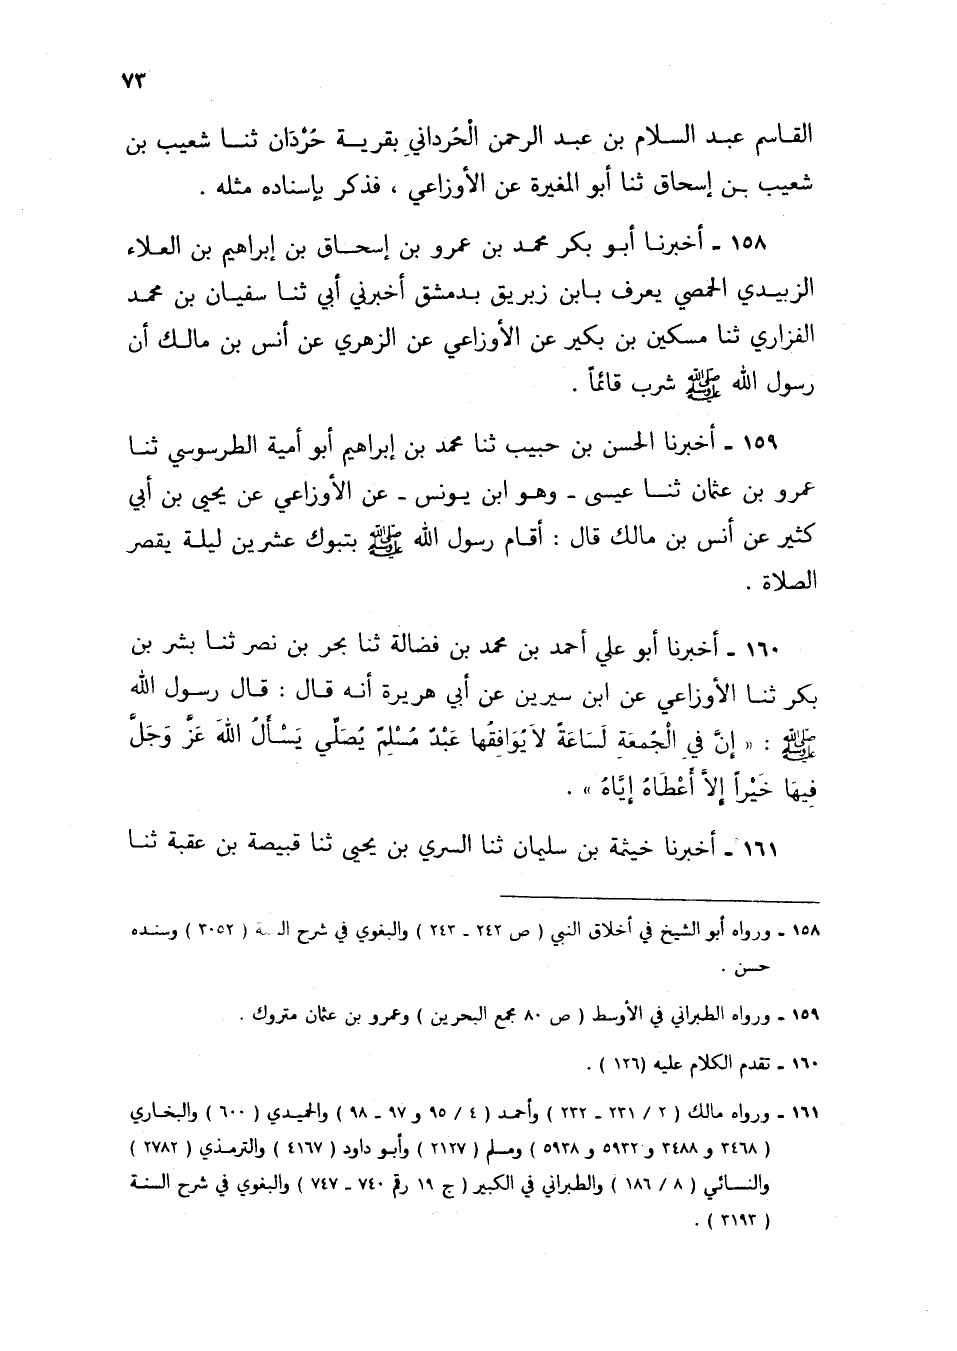 ٧٣
القاسم عبد السلام بن عبد الرحمن الْحُرداني بقرية حُرْدَان ثنا شعيب بن
شعيب بن إسحاق ثنا أبو المغيرة عن الأوزاعي ، فذكر بإسناده مثله .
١٥٨ ـ أخبرنا أبو بكر محمد بن عمرو بن إسحاق بن إبراهيم بن العلاء
الزبيدي الحمصي يعرف بابن زبريق بدمشق أخبرني أبي ثنا سفيان بن محمد
الفزاري ثنا مسكين بن بكير عن الأوزاعي عن الزهري عن أنس بن مالك أن
رسول الله ﷺ شرب قائماً .
١٥٩ ـ أخبرنا الحسن بن حبيب ثنا محمد بن إبراهيم أبو أمية الطرسوسي ثنا
عمرو بن عثمان ثنا عيسى ـ وهو ابن يونس ـ عن الأوزاعي عن يحيى بن أبي
كثير عن أنس بن مالك قال : أقام رسول الله ﷺ بتبوك عشرين ليلة يقصر
الصلاة .
١٦٠ ـ أخبرنا أبو علي أحمد بن محمد بن فضالة ثنا بحر بن نصر ثنا بشر بن
بكر ثنا الأوزاعي عن ابن سيرين عن أبي هريرة أنه قال : قال رسول الله
ﷺ : « إِنَّ فِي الْجُمعَةِ لَسَاعَةً لاَيُوَافِقُها عَبْدٌ مُسْلِمٌ يُصَلِّي يَسْأَلُ اللَّهَ عَزَّ وَجَلَّ
فِيهَا خَيْراً إِلاَّ أَعْطَاهُ إِيَّاهُ » .
١٦١ ـ أخبرنا خيثمة بن سليمان ثنا السري بن يحيى ثنا قبيصة بن عقبة ثنا
١٥٨ ـ ورواه أبو الشيخ في أخلاق النبي ( ص ٢٤٢ ـ ٢٤٣ ) والبغوي في شرح ( ٣٠٥٢ ) وسنده
حسن .
١٥٩ ـ ورواه الطبراني في الأوسط ( ص ٨٠ مجمع البحرين ) وعمرو بن عثمان متروك .
١٦٠ ـ تقدم الكلام عليه (١٢٦ ) .
١٦١ ـ ورواه مالك ( ٢ / ٢٣١ ـ ٢٣٢ ) وأحمد ( ٤ / ٩٥ و ٩٧ ـ ٩٨ ) والحميدي ( ٦٠٠ ) والبخاري
( ٣٤٦٨ و ٣٤٨٨ و ٥٩٣٢ و ٥٩٣٨ ) ومسلم ( ٢١٢٧ ) وأبو داود ( ٤١٦٧ ) والترمذي ( ٢٧٨٢ )
والنسائي ( ٨ / ١٨٦ ) والطبراني في الكبير ( ج ١٩ رقم ٧٤٠ ـ ٧٤٧ ) والبغوي في شرح السنة
( ٣١٩٣ ) .